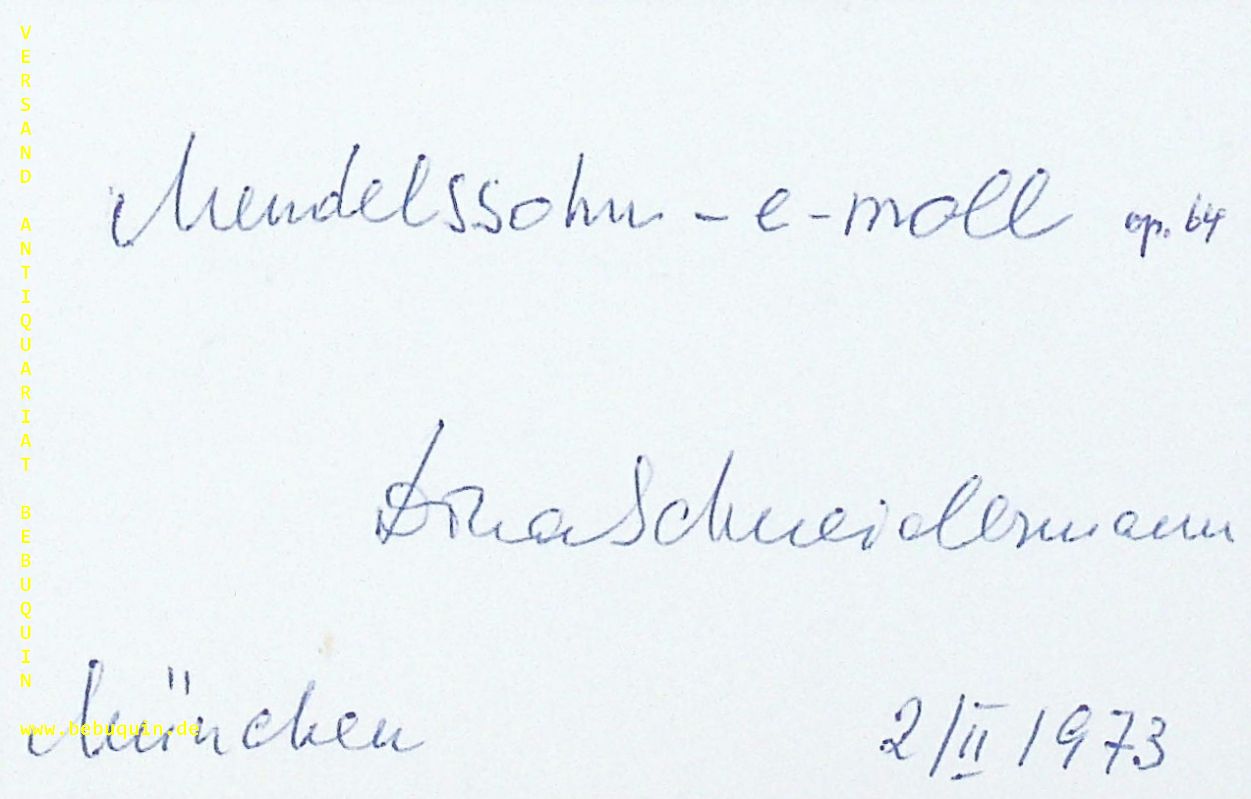 Mendelssohn - e-moll op. 64
Dina Schneidermann
München 2/II 1973
VERSAND ANTIQUARIAT BEBUQUIN
www.bebuquin.de